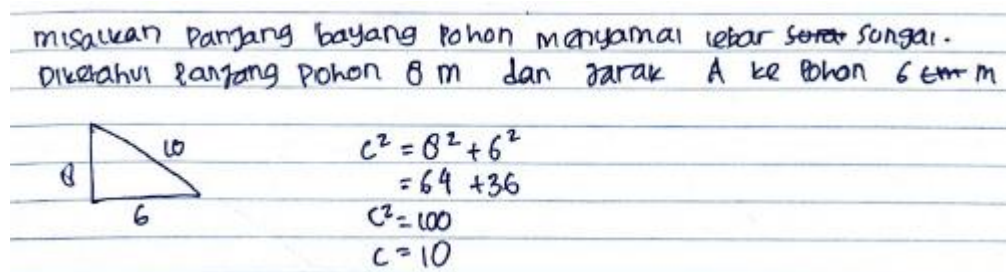 misalkan panjang bayang pohon menyamai lebar sungai.
Diketahui panjang pohon 8 m dan jarak A ke pohon 6 m
10
8
6
c² = 8² + 6²
= 64 + 36
c² = 100
c = 10